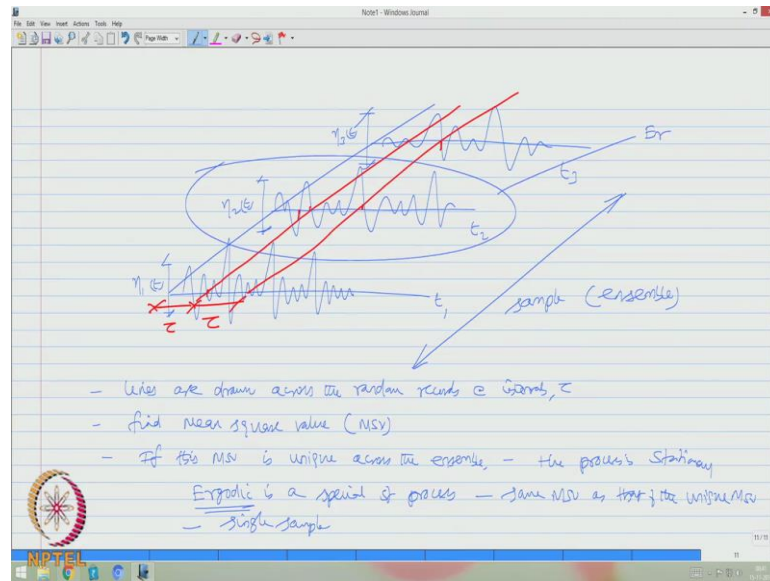 Note1 - Windows Journal
File Edit View Insert Actions Tools Help
Page Width
η3(t)
Er
t3
η2(t)
t2
η1(t)
t1
sample (ensemble)
τ τ
- lines are drawn across the random records @ τ
- find Mean square value (MSV)
- If this MSV is unique across the ensemble, - the process Stationary
Ergodic is a special of process - same MSV as that of the unique MSV
- single sample
NPTEL
11/11
11